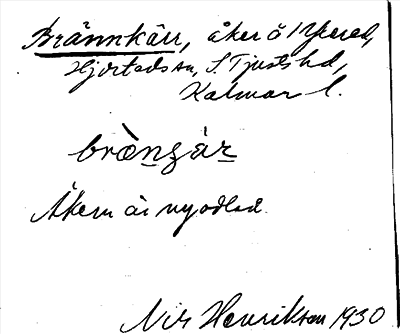 Brännkärr, åker å 1 Ykered,
Hjorteds sn, S. Tjusts hd,
Kalmar l.
brȁn̠ʒár̠
Åkern är nyodlad.
Nils Henrikson 1930